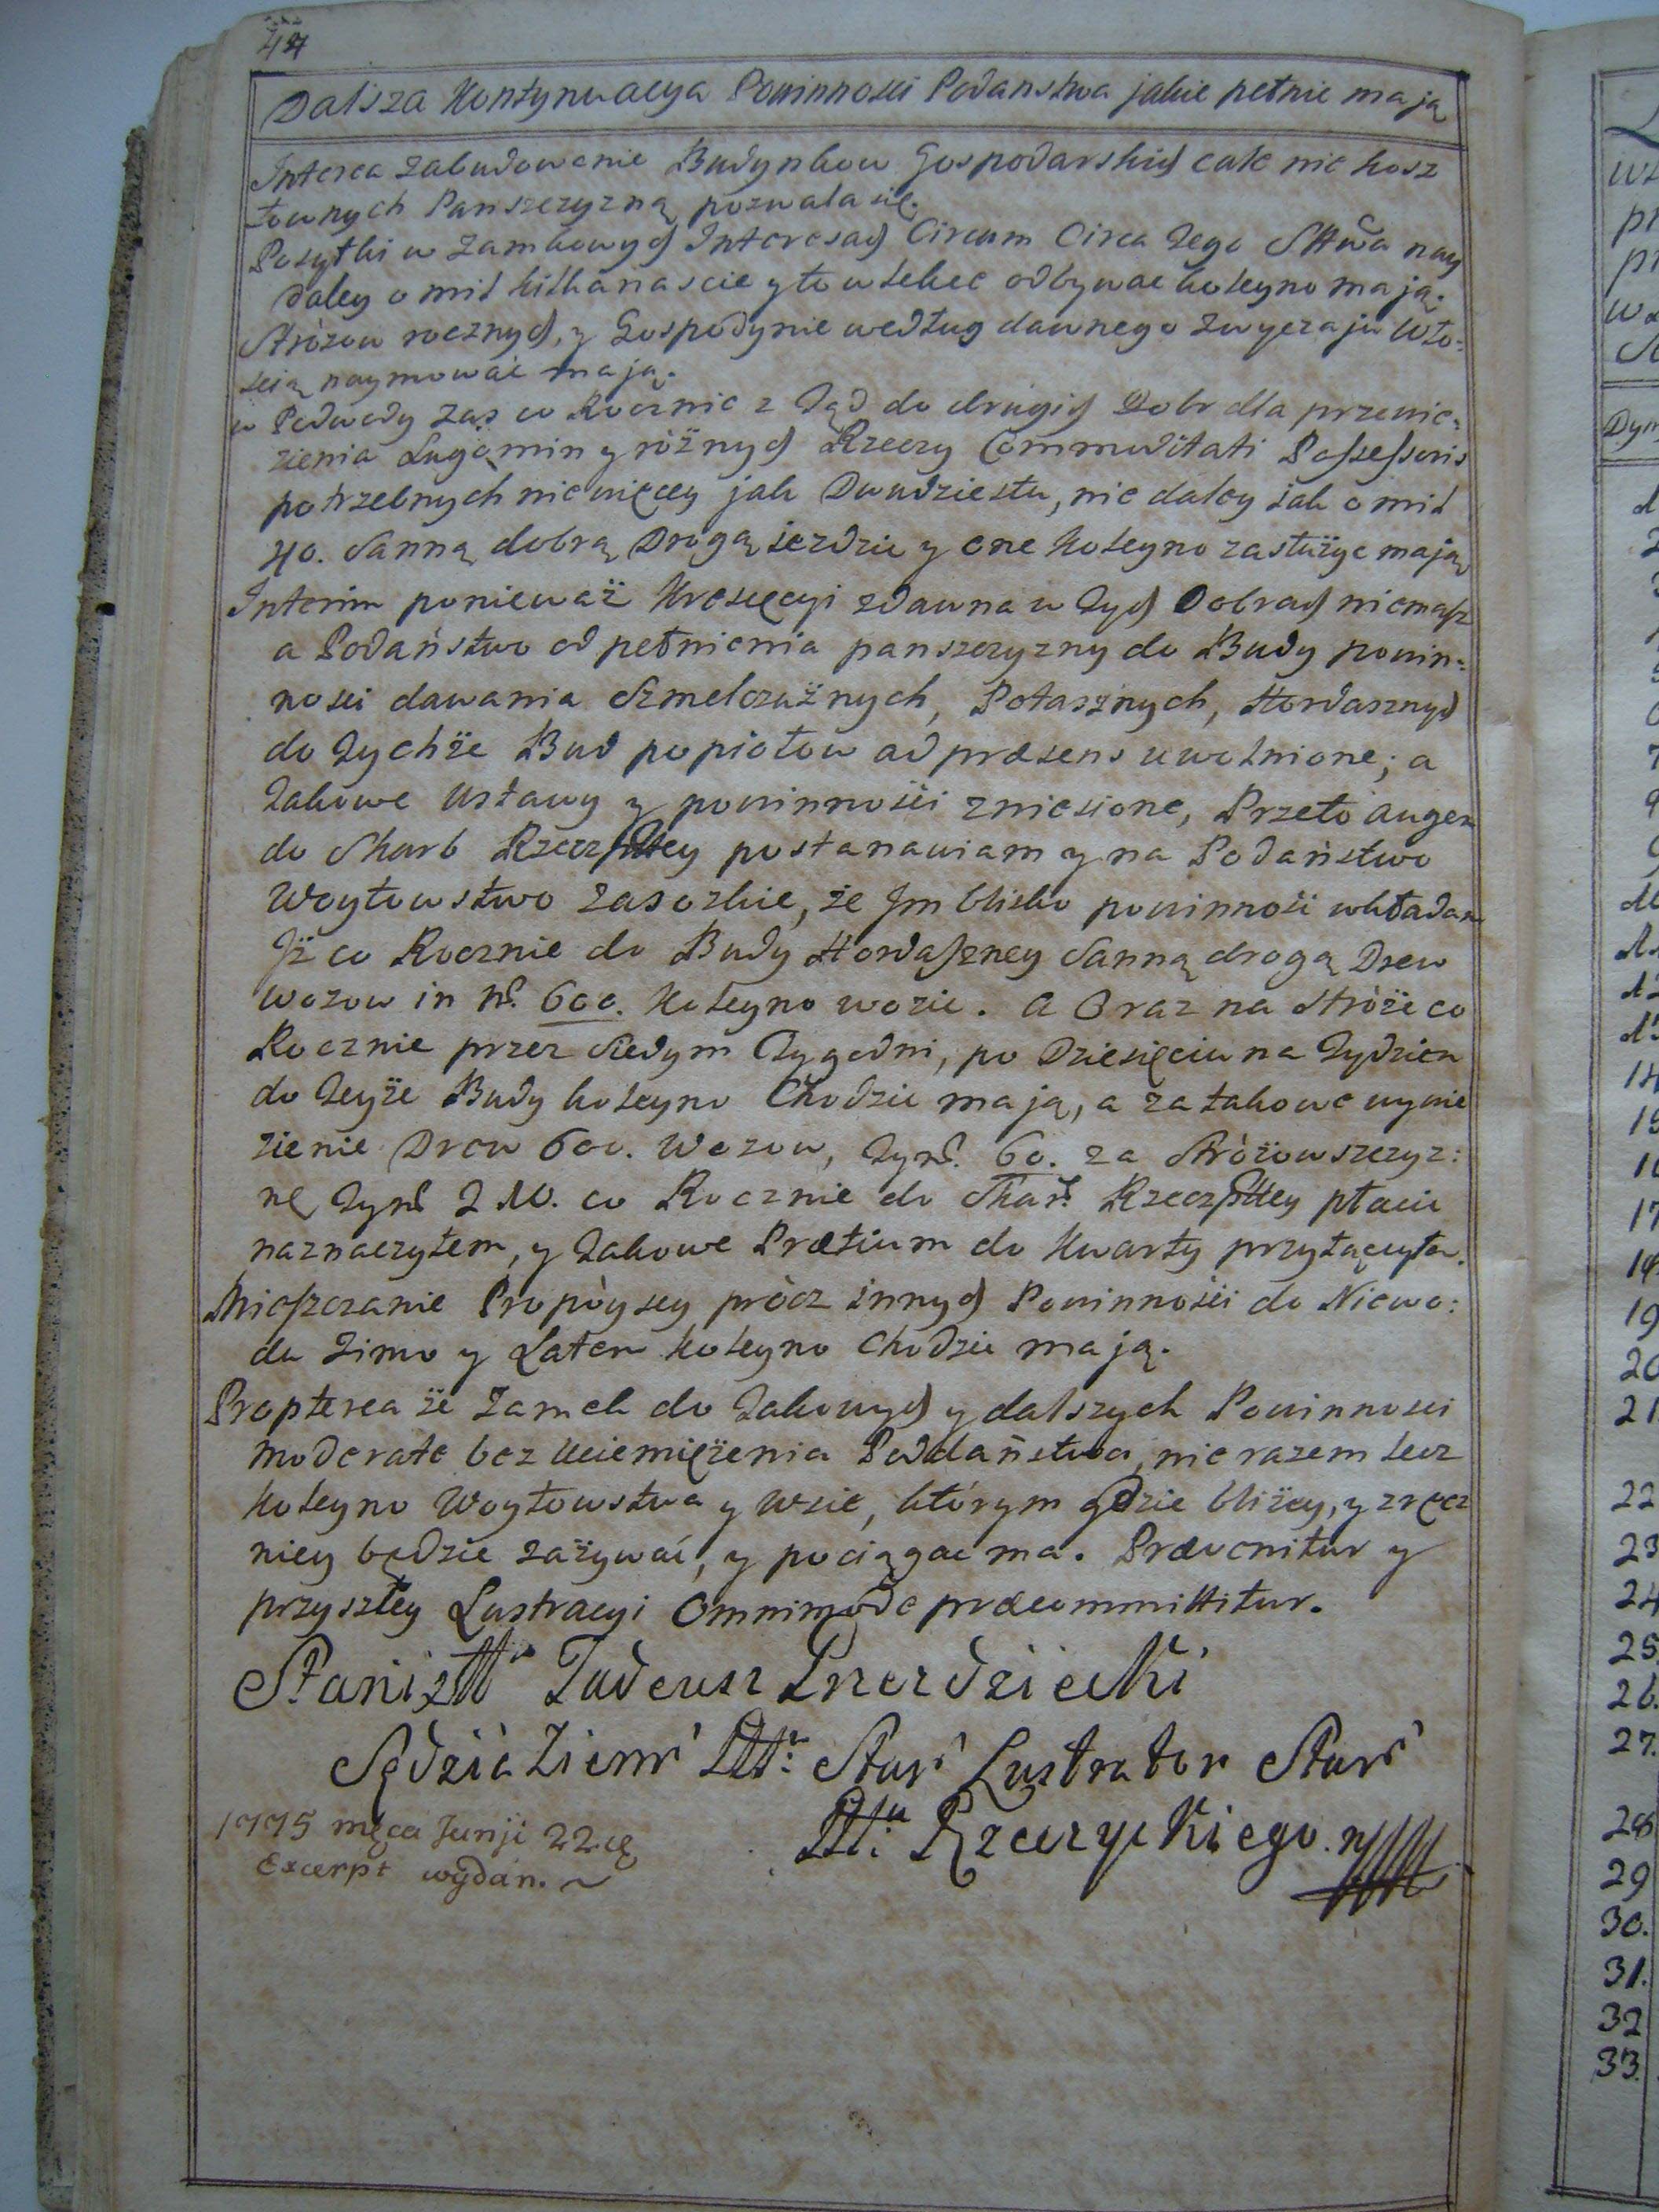 44
Dalsza Kontynuacya Powinnosci Podanstwa jakie pełnic mają
Interea zabudowanie Budynkow Gospodarskich cale nie kosz
townych Panszczyzną pozwala się.
Posyłki w Zamkowych Interesach Circum Circa tego Sttwa nay
daley o mil kilkanascie y to w lekce odbywac koleyno mają.
Stróżow rocznych, y Gospodynie według dawnego zwyczaju Wło:
scią naymować mają.
w Podwody zaś co Rocznie z tąd do drugich Dobr dla przewie:
zienia Legomin y róźnych Rzeczy Commoditati Possessoris
potrzebnych nie więcey jak Dwudziestu, nie daley jak o mil
40. Sanną dobrą Drogą iezdzic y one koleyno zastużyc mają
Interim ponieważ Kresęcyi zdawna w tych Dobrach niemasz
a Podaństwo od pełnienia panszczyzny do Budy powin:
nosci dawania Szmelcuźnych, Potasznych, Hordasznych
do tychże Bud popiołow ad præsens uwolnione; a
takowe Ustawy y powinnośći zniesione, Przeto
do Skarb Rzeczpltey postanawiam y na Podaństwo
Woytowstwo Zasozkie, że Im blisko powinnośi wkładam
Iż co Rocznie do Budy Hordaszney Sanną drogą Drew
wozow in No. 600. koleyno wozic. a Oraz na Stróże co
Rocznie przez Siedym Tygodni, po Dziesięciu na Tydzien
do teyże Budy koleyno Chodzic mają, a za takowe wywie
zienie Drew 600. Wozow, Tynf. 60. za Stróżowszczyz:
nę Tynf 210. co Rocznie do Skar. Rzeczpltey płacic
naznaczyłem, y takowe Prætium do Kwarty przyłączyłem.
Mieszczanie Propoysey procz innych Powinnośći do Niewo:
du Zimo y Latem koleyno chodzic mają.
Propterea że Zamek do takowych y dalszych Powinnosci
moderate bez Uciemiężenia Poddaństwa, nie razem lecz
koleyno Woytowstwa y Wsie, którym gdzie bliżey, y zręcz
niey będzie zażywać, y pociągac ma. Prævenitur y
przyszłey Lustracyi Omnimode præcommittitur.
Stanisłł Tadeusz
Sędzia Ziem Pttu Star Lustrator Star
Pttu Rzeczyckiego.
1775 męca Junji 22 d.
Excerpt wydan.
Dym
14
15
16
17
18
19
20
21
22
23
24
25
26.
27.
28
29
30.
31.
32
33.